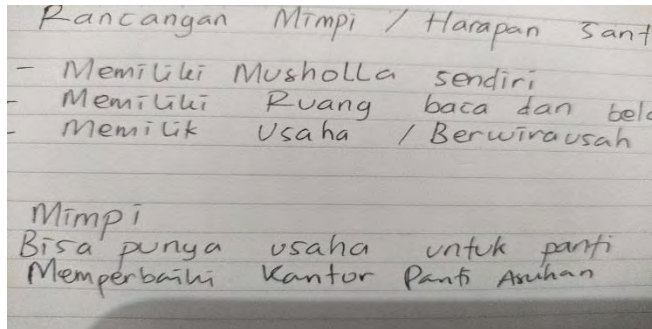 Rancangan Mimpi / Harapan Sant
- Memiliki MushoLLa sendiri
- Memiliki Ruang baca dan bela
- Memilik Usaha / Berwirausah
Mimpi
Bisa punya usaha untuk panti
Memperbaiki Kantor Panti Asuhan